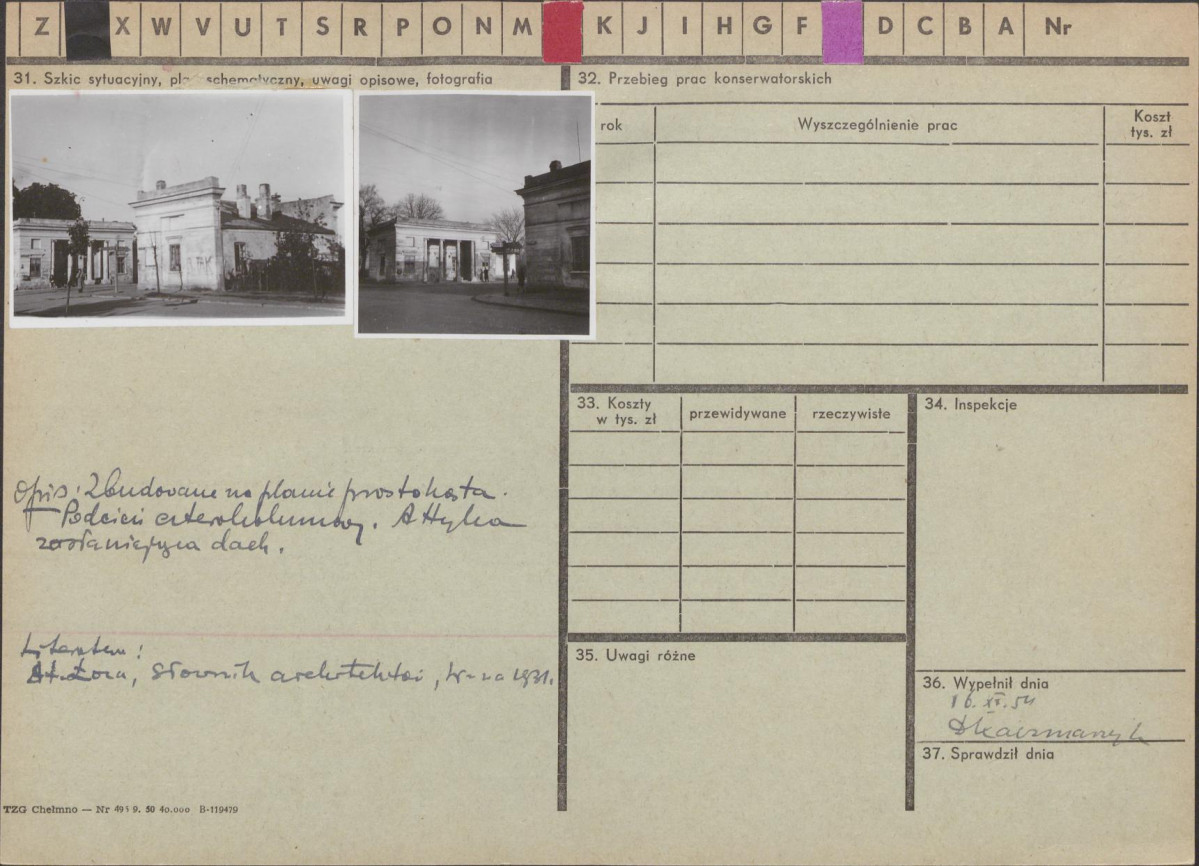 Z X W V U T S R P O N M K J I H G F D C B A Nr
31. Szkic sytuacyjny, schematyczny, uwagi opisowe, fotografia
32. Przebieg prac konserwatorskich
rok
Wyszczególnienie prac
Koszt
tys. zł
33. Koszty
w tys. zł
przewidywane
rzeczywiste
34. Inspekcje
Opis: Zbudowane na planie prostokąta.
Podcień czterokolumnowy. Attyka
zasłaniająca dach.
Literatura:
Łoza, Słownik architektów, W-wa 1931.
35. Uwagi różne
36. Wypełnił dnia
16.XI.54
Kaczmarczyk
37. Sprawdził dnia
TZG Chełmno — Nr 495 9. 50 40.000 B-119479